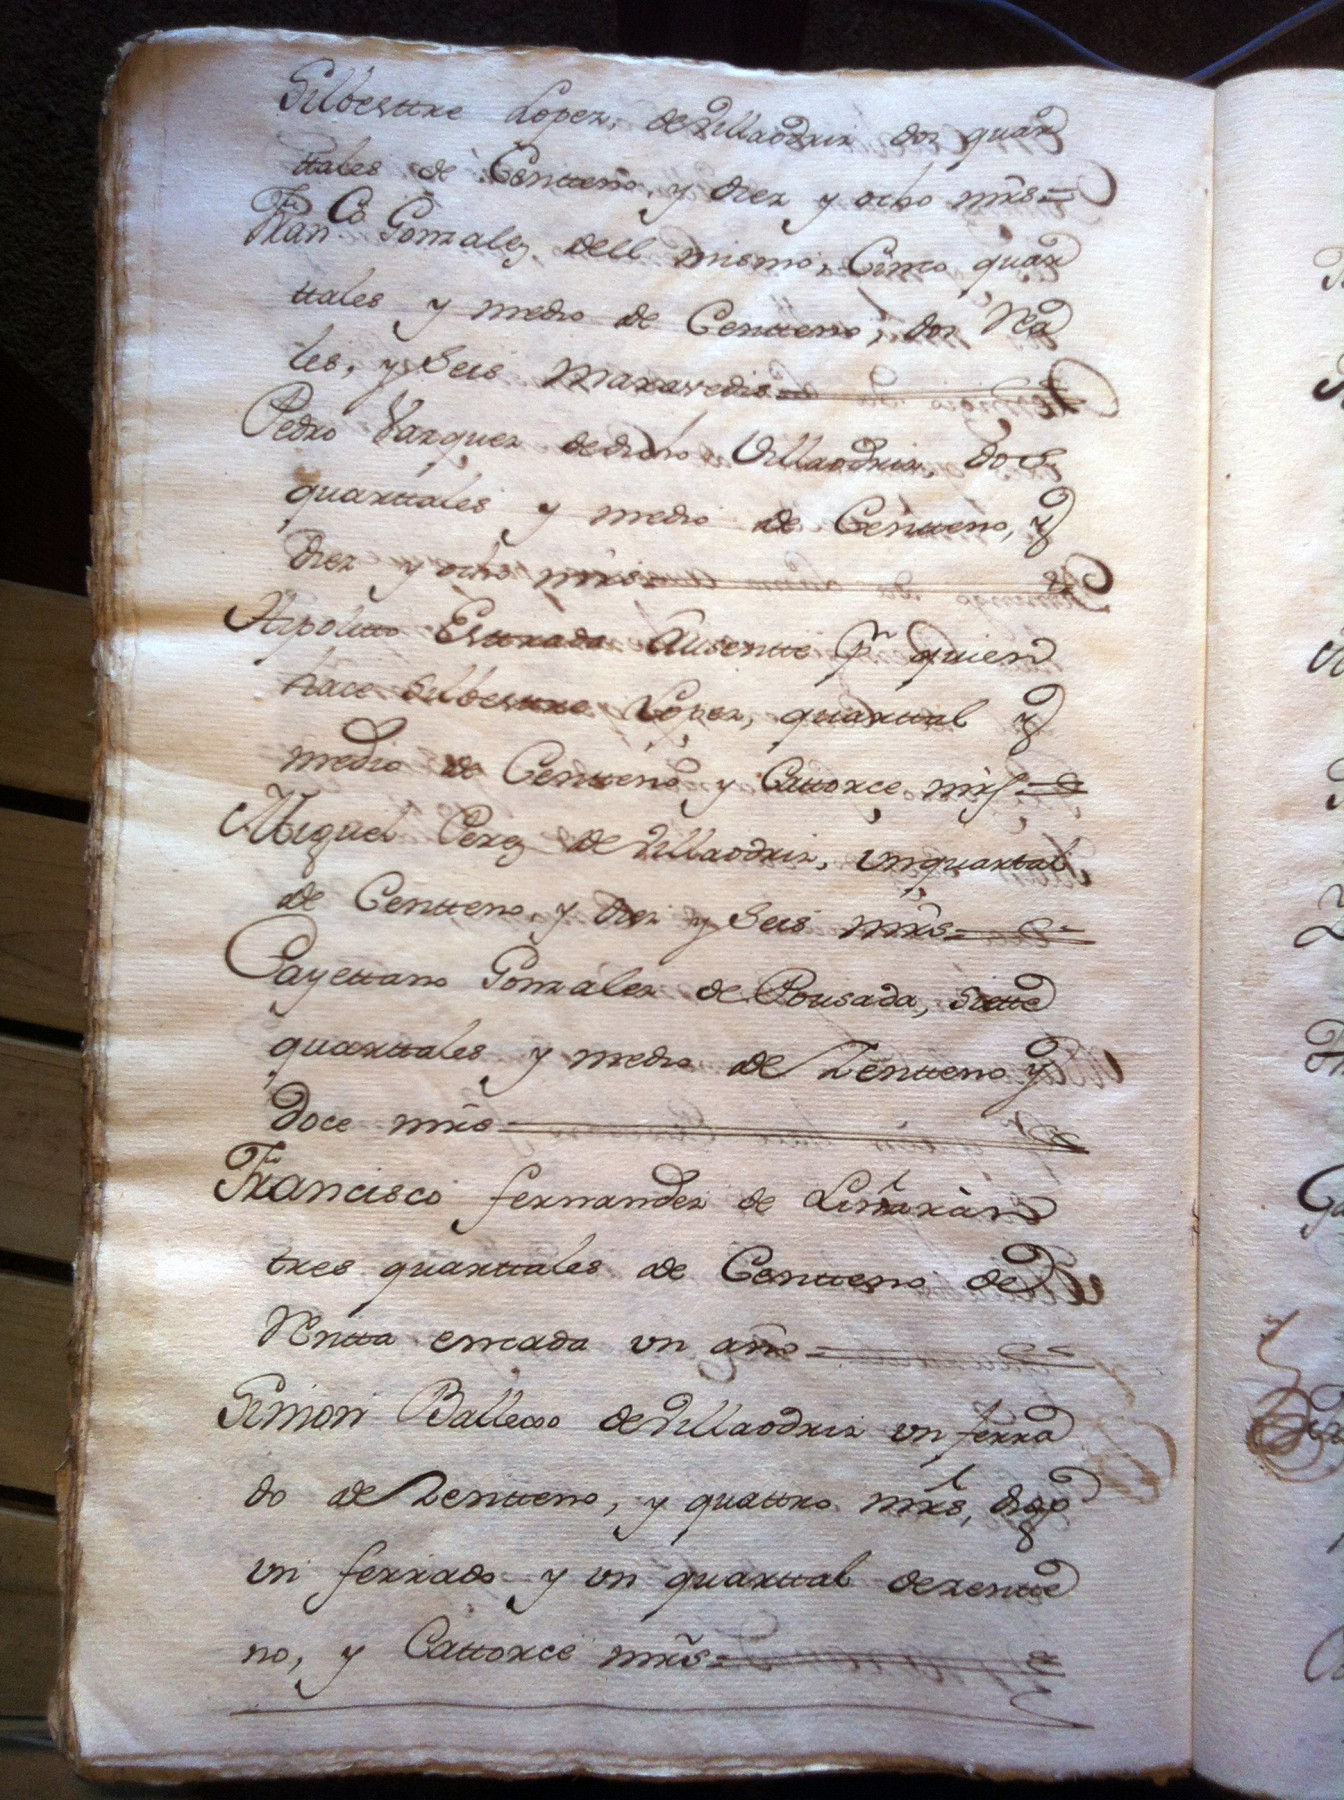 Silbesttre Lopez, de Villaodriz dos quar
ttales de Centteno, y diez y ocho mrs=
Fran.co Gonzalez dell mismo, Cinco quar
ttales y medio de Centteno, dos Rea
les, y Seis maravedis=
Pedro Vazquez de dicho Villaodriz, dos
quarttales y medio de Centteno, y
diez y ocho mrs=
Hipolitto Esttrada Ausentte pr quien
hace Silbesttre Lopez, quarttal y
medio de Centteno y Cattorce mrs=
Miguel Perez de Villaodriz, un quartal
de Centteno, y diez y Seis mrs=
Cayettano Gonzalez de Pousada, Siette
quarttales y medio de Zentteno y
doce mrs=
Francisco fernandez de Liñaran
tres quarttales de Centteno de
Rentta encada un año=
Simon Ballejo de Villaodriz un ferra
do de Zentteno, y quattro mrs, digo
un ferrado y un quarttal dezentte
no, y Cattorce mrs=